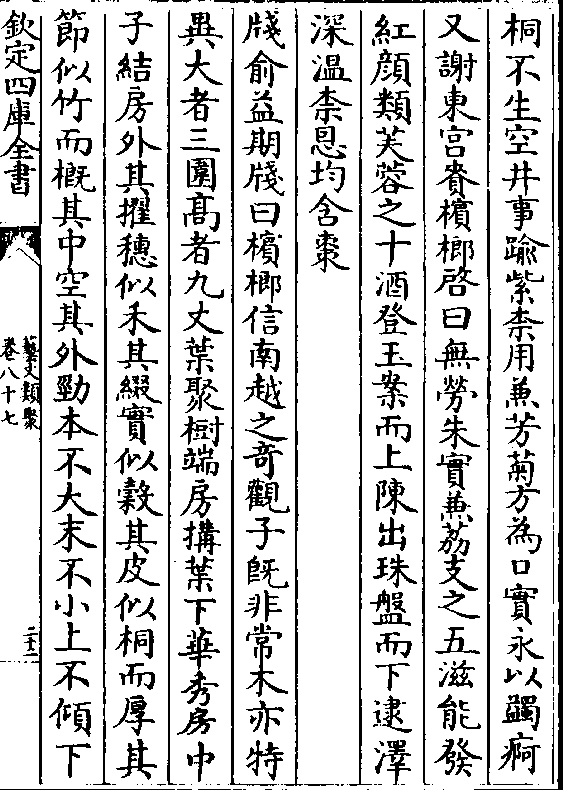 桐不生空井事踰紫柰用兼芳菊方為口實永以蠲痾
又謝東宮賚檳榔啓曰無勞朱實兼荔支之五滋能發
紅顔類芙蓉之十酒登玉案而上陳出珠盤而下逮澤
深温柰恩均含棗
牋俞益期牋曰檳榔信南越之竒觀子既非常木亦特
異大者三圍髙者九丈葉聚樹端房搆葉下華秀房中
子結房外其擢穗似禾其綴實似穀其皮似桐而厚其
節似竹而概其中空其外勁本不大末不小上不傾下
欽定四庫全書
藝文類聚
卷八十七